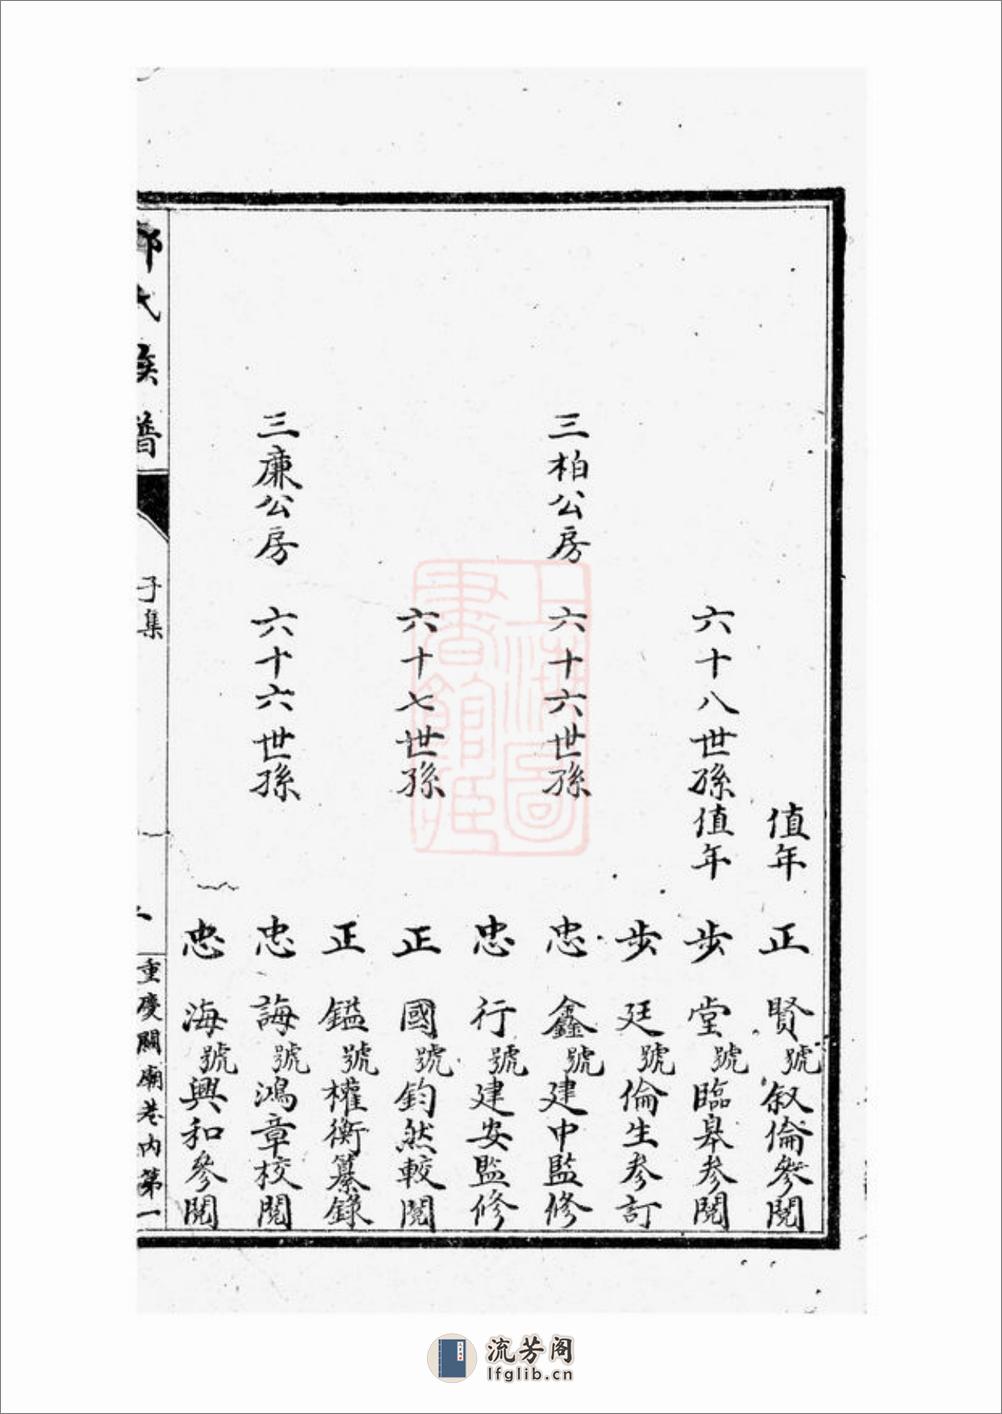 值年 正賢號叙倫參閱
六十八世孫值年 步堂號臨皋參閱
步廷號倫生參訂
三柏公房 六十六世孫 忠鑫號建中監修
忠行號建安監修
六十七世孫 正國號鈞然較閱
正鎰號權衡纂錄
三廉公房 六十六世孫 忠誨號鴻章校閱
忠海號興和參閱
氏族譜 子集
重慶關廟巷內第一
上海圖書館藏
流芳阁
lfglib.cn